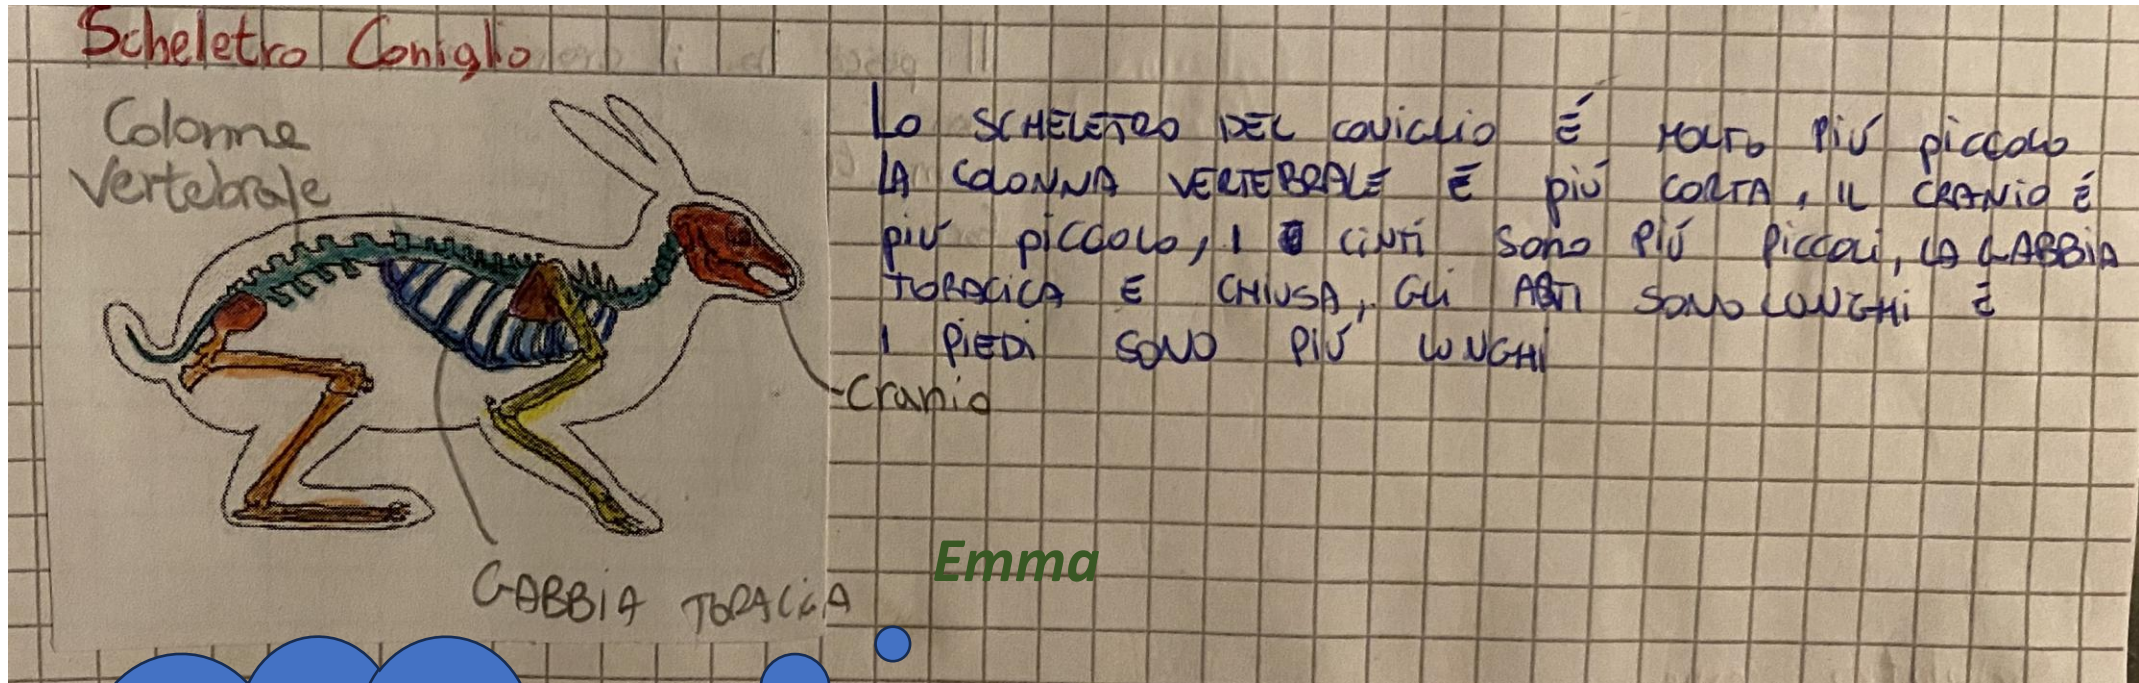 Scheletro Coniglio
Colonne
Vertebrale
LO SCHELETRO DEL CONIGLIO É MOLTO PIÚ piccolo
LA COLONNA VERTEBRALE É PIÚ CORTA, IL CRANIO É
PIÚ piccolo, I CINTI SONO PIÚ PICCOLI, LA GABBIA
TORACICA E CHIUSA, GLI ARTI SONO LUNGHI E
I PIEDI SONO PIÚ LUNGHI
Cranio
GABBIA TORACICA
Emma